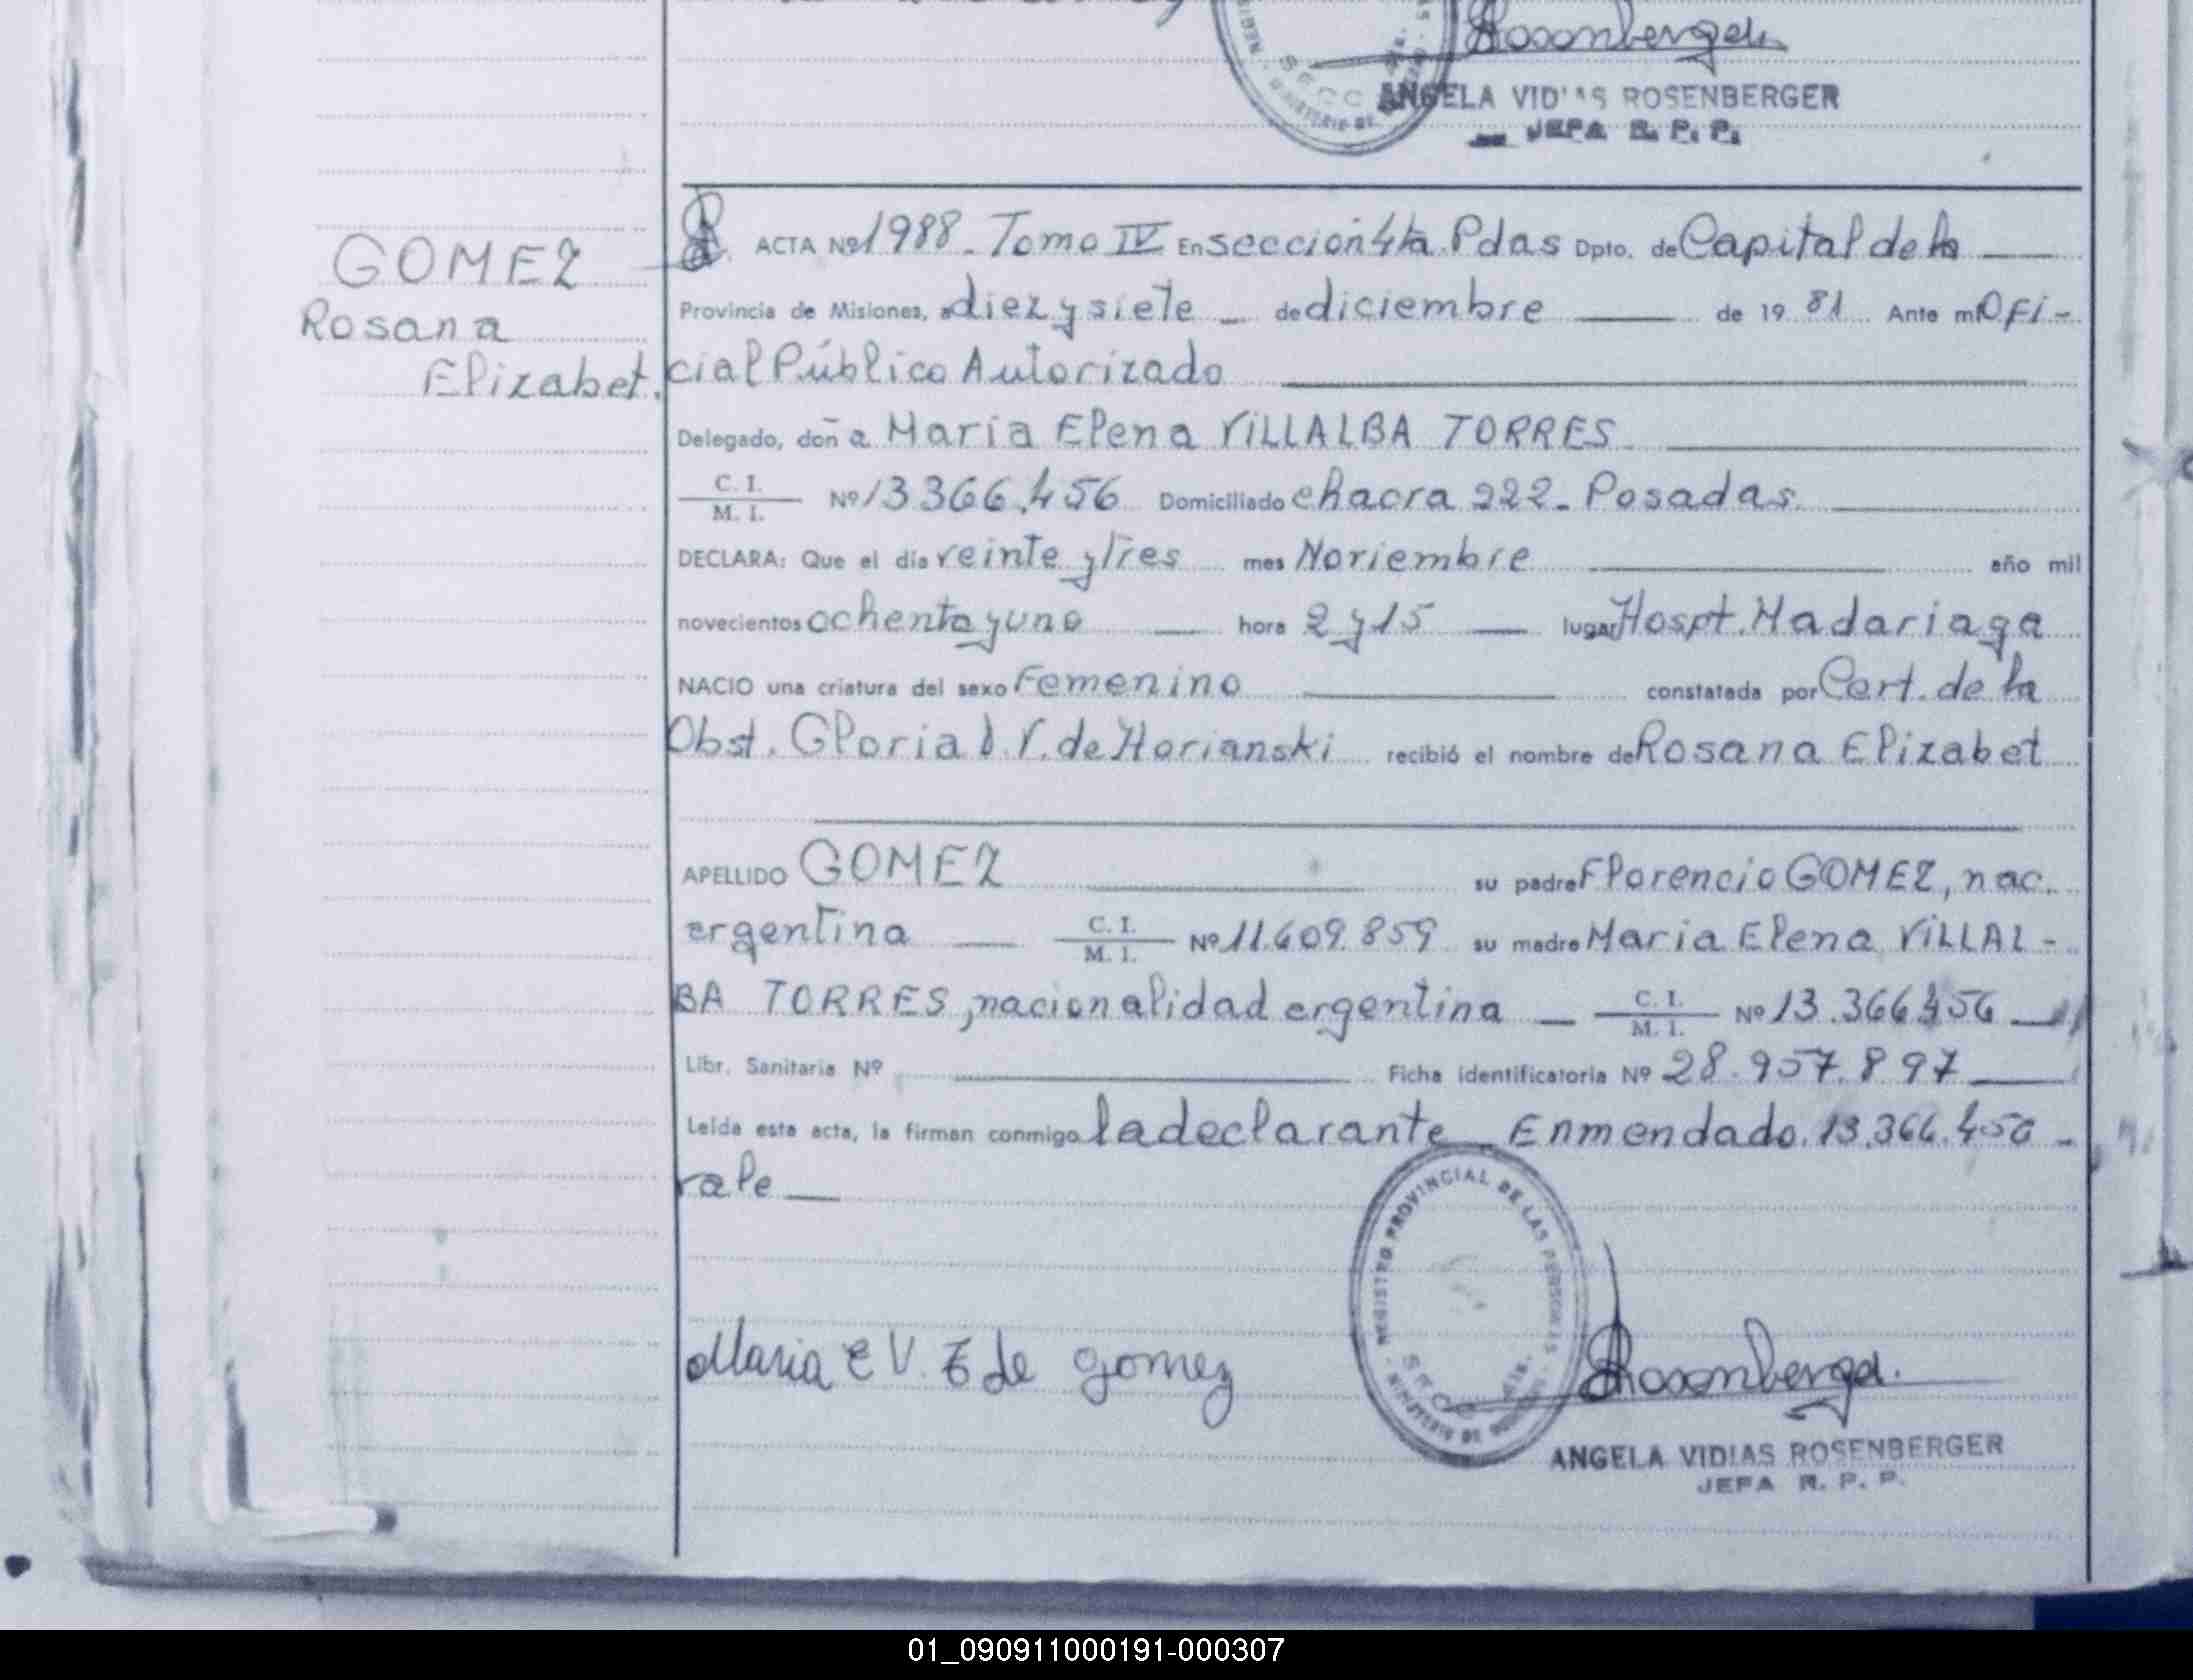 Rosenberger
ANGELA VIDIAS ROSENBERGER
JEFA R. P. P.
GOMEZ
Rosana
Elizabet.
ACTA Nº 1988 - Tomo IV En seccion 4ta. Pdas Dpto. de Capital de la
Provincia de Misiones, a diez y siete - de diciembre de 19 81 Ante mi Ofi-
cial Público Autorizado
Delegado, doña Maria Elena VILLALBA TORRES
C. I.
M. I. Nº 13366.456 Domiciliado chacra 222 - Posadas.
DECLARA: Que el día veinte y tres mes Noviembre año mil
novecientos ochenta y uno hora 2 y 15 lugar Hospt. Madariaga
NACIO una criatura del sexo Femenino constatada por Cert. de la
Obst. Gloria D. V. de Horianski recibió el nombre de Rosana Elizabet
APELLIDO GOMEZ su padre Florencio GOMEZ, nac.
argentina C. I.
M. I. Nº 11.609.859 su madre Maria Elena VILLAL-
BA TORRES, nacionalidad argentina - C. I.
M. I. Nº 13.366.456
Libr. Sanitaria Nº Ficha identificatoria Nº 28.957.897
Leída esta acta, la firman conmigo la declarante - Enmendado. 13.366.456 -
vale
REGISTRO PROVINCIAL DE LAS PERSONAS - MINISTERIO DE
Maria E V. T de gomez
Rosenberger
ANGELA VIDIAS ROSENBERGER
JEFA R. P. P.
01_090911000191-000307